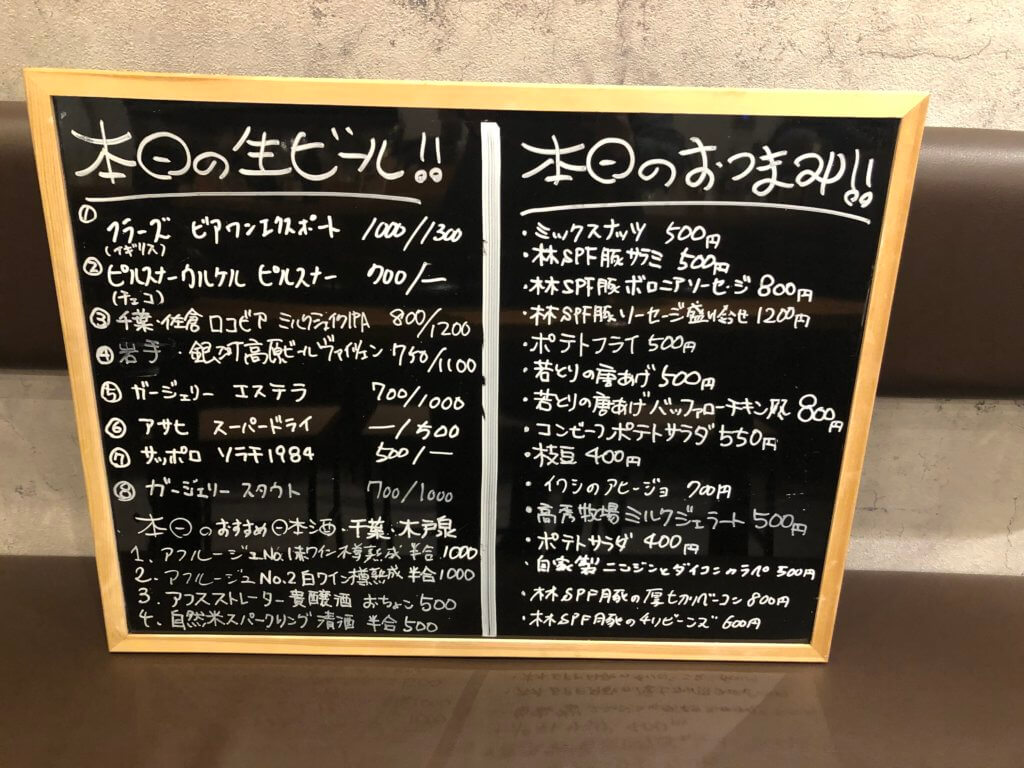 本日の生ビール!!
① フラーズ ビアワンエクスポート 1000/1300
(イギリス)
② ピルスナーウルケル ピルスナー 700/—
(チェコ)
③ 千葉・佐倉 ロコビア ミルクシェイクIPA 800/1200
④ 岩手・銀河高原ビール ヴァイツェン 750/1100
⑤ ガージェリー エステラ 700/1000
⑥ アサヒ スーパードライ —/500
⑦ サッポロ ソラチ1984 500/—
⑧ ガージェリー スタウト 700/1000
本日のおすすめ日本酒・千葉・木戸泉
1、アフルージュNo.1 赤ワイン樽熟成 半合1000
2、アフルージュ No.2 白ワイン樽熟成 半合1000
3、アフスストレーター 貴醸酒 おちょこ500
4、自然米スパークリング 清酒 半合500
本日のおつまみ!!
・ミックスナッツ 500円
・林SPF豚サラミ 500円
・林SPF豚 ボロニアソーセージ 800円
・林SPF豚ソーセージ盛り合せ 1200円
・ポテトフライ 500円
・若とりの唐あげ 500円
・若とりの唐あげバッファローチキン風 800円
・コンビーフポテトサラダ 550円
・枝豆 400円
・イワシのアヒージョ 700円
・高秀牧場 ミルクジェラート 500円
・ポテトサラダ 400円
・自家製 ニンジンとダイコンのラペ 500円
・林SPF豚の厚切りベーコン 800円
・林SPF豚のチリビーンズ 600円